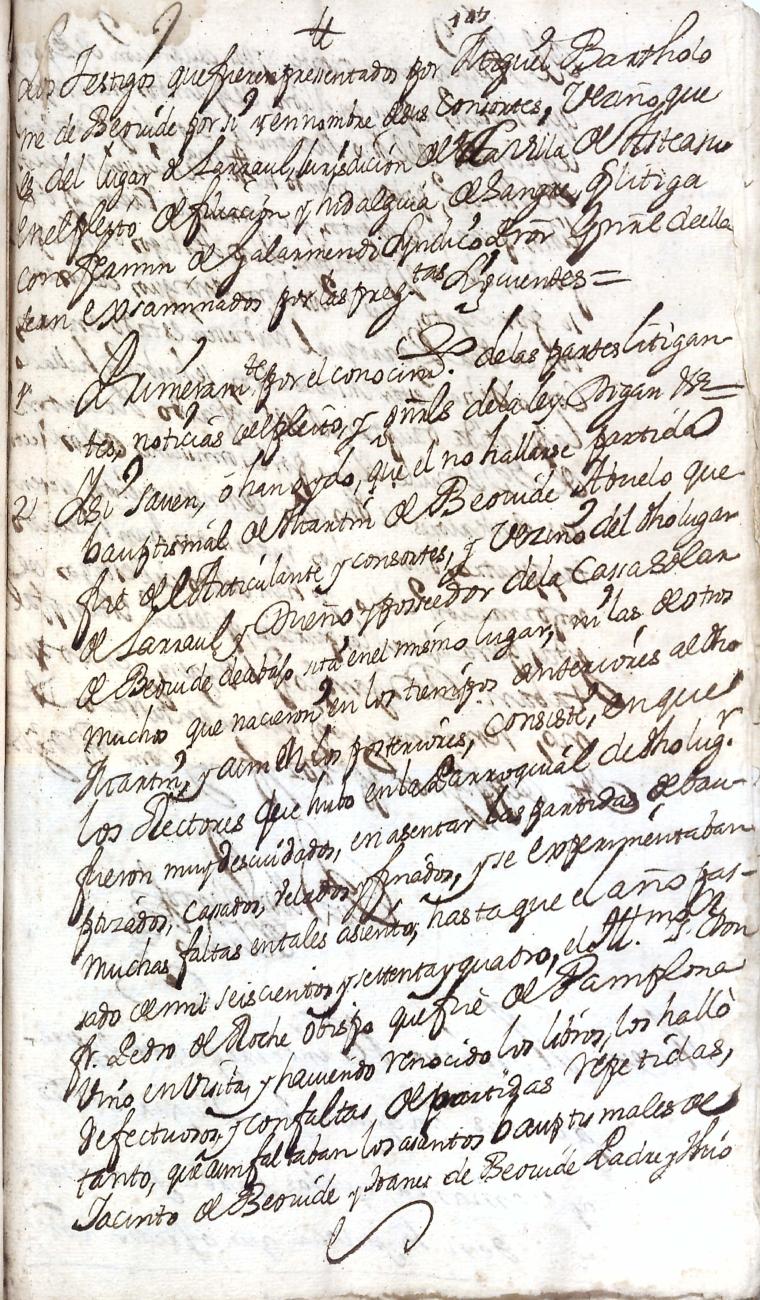 147
Los Testigos que fueren presentados por Miguel Bartholo
me de Beovide por sí y en nombre de sus Consortes, Vezino que
es del lugar de Larraul, Jurisdición de la Villa de Asteasu
en el pleyto de filiación y hidalguia de Sangre, q̃ litiga
con Fermin de Galarmendi Syndico Pror̃ gñral de ella
sean examinados por las preg.tas Siguientes =
1 Primeram.te por el conocim.to de las partes litigan-
tes, noticias del pleito, y gñrls de la ley Digan &ª =
2 Ysi saven, ó han oydo, que el no hallarse partida
bauptismal de Martin de Beovide Abuelo que
fue del Articulante y consortes, y Vezino del dho lugar
de Larraul y Dueño y posseedor de la Cassa Solar
de Beovide de abajo sita en el mismo lugar, ni las de otros
mucho que nacieron en los tiempos anteriores al dho
Martin, y aun en los posteriores, consiste, en que
los Rectores que hubo en la Parroquial de dho lug.r
fueron muy descuidados, en asentar las partidas de bau-
ptizados, casados, velados y finados, y se experimentaban
muchas faltas en tales asientos, hasta que el año pas-
sado de mil seiscientos y settenta y quatro, el Ill.mo S.r Don
fr. Pedro de Roche Obispo que fue de Pamplona
vino en Visita, y haviendo renocido los libros, los halló
defectuosos, y con faltas, de partidas repetidas,
tanto, que aun faltaban los asientos bauptismales de
Jacinto de Beovide y Joanes de Beovide Padre y Hijo